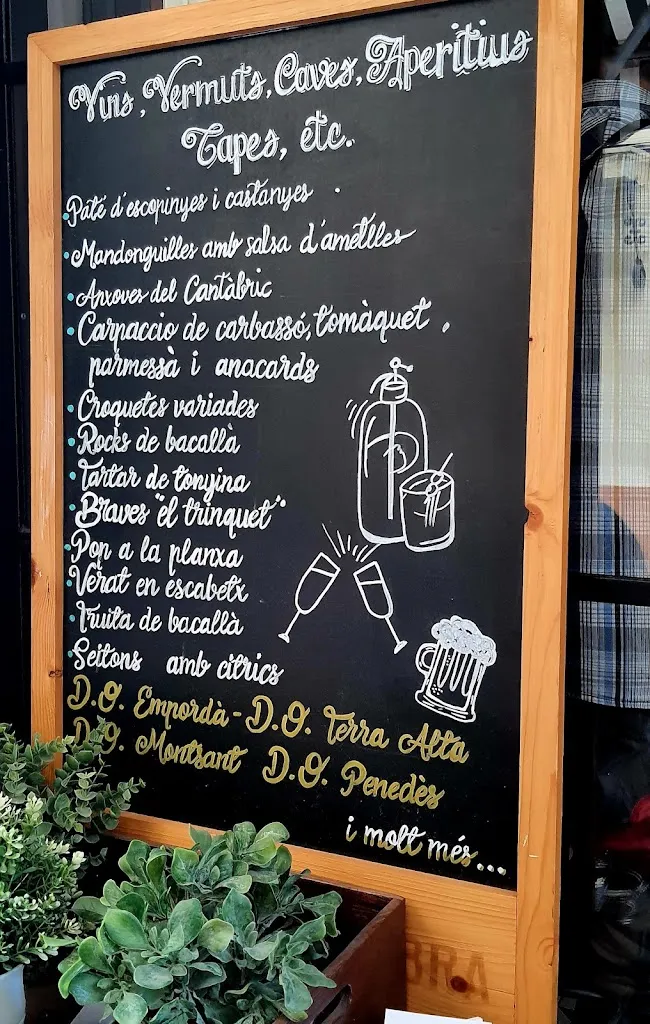 Vins, Vermuts, Caves, Aperitius
Tapes, etc.
Paté d'escopinyes i castanyes
Mandonguilles amb salsa d'ametlles
Anxoves del Cantàbric
Carpaccio de carbassó, tomàquet,
parmessà i anacards
Croquetes variades
Rocks de bacallà
Tartar de tonyina
Braves "el trinquet"
Pop a la planxa
Verat en escabetx
Truita de bacallà
Seitons amb cítrics
D.O. Empordà - D.O. Terra Alta
D.O. Montsant D.O. Penedès
i molt més...